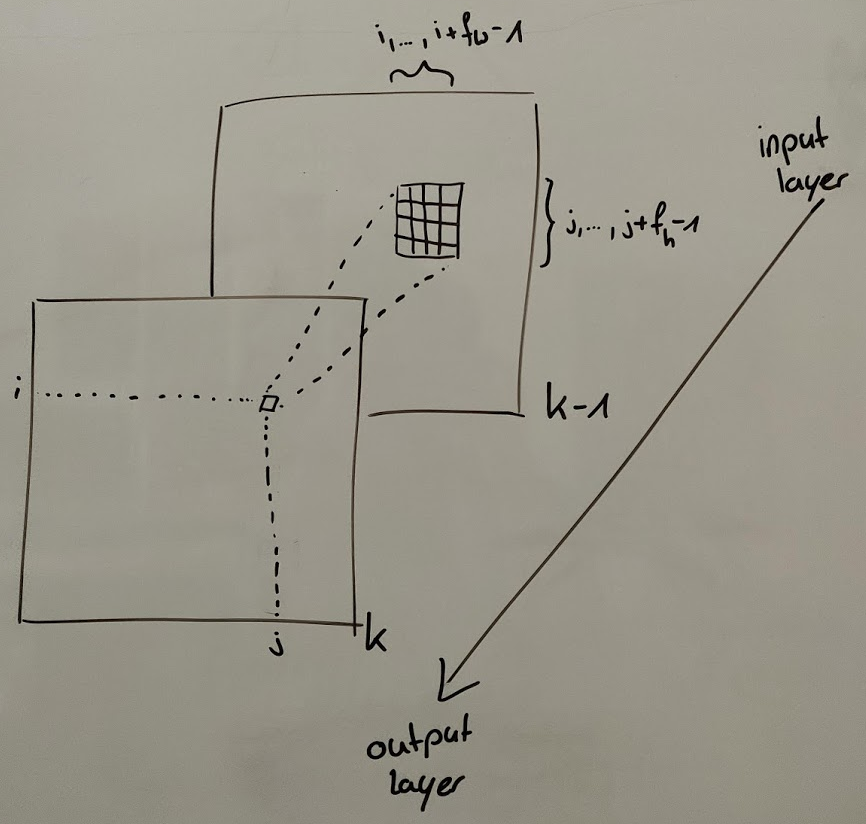 i,...,i+fw-1
input
layer
j,...,j+fh-1
i
k-1
j
k
output
layer